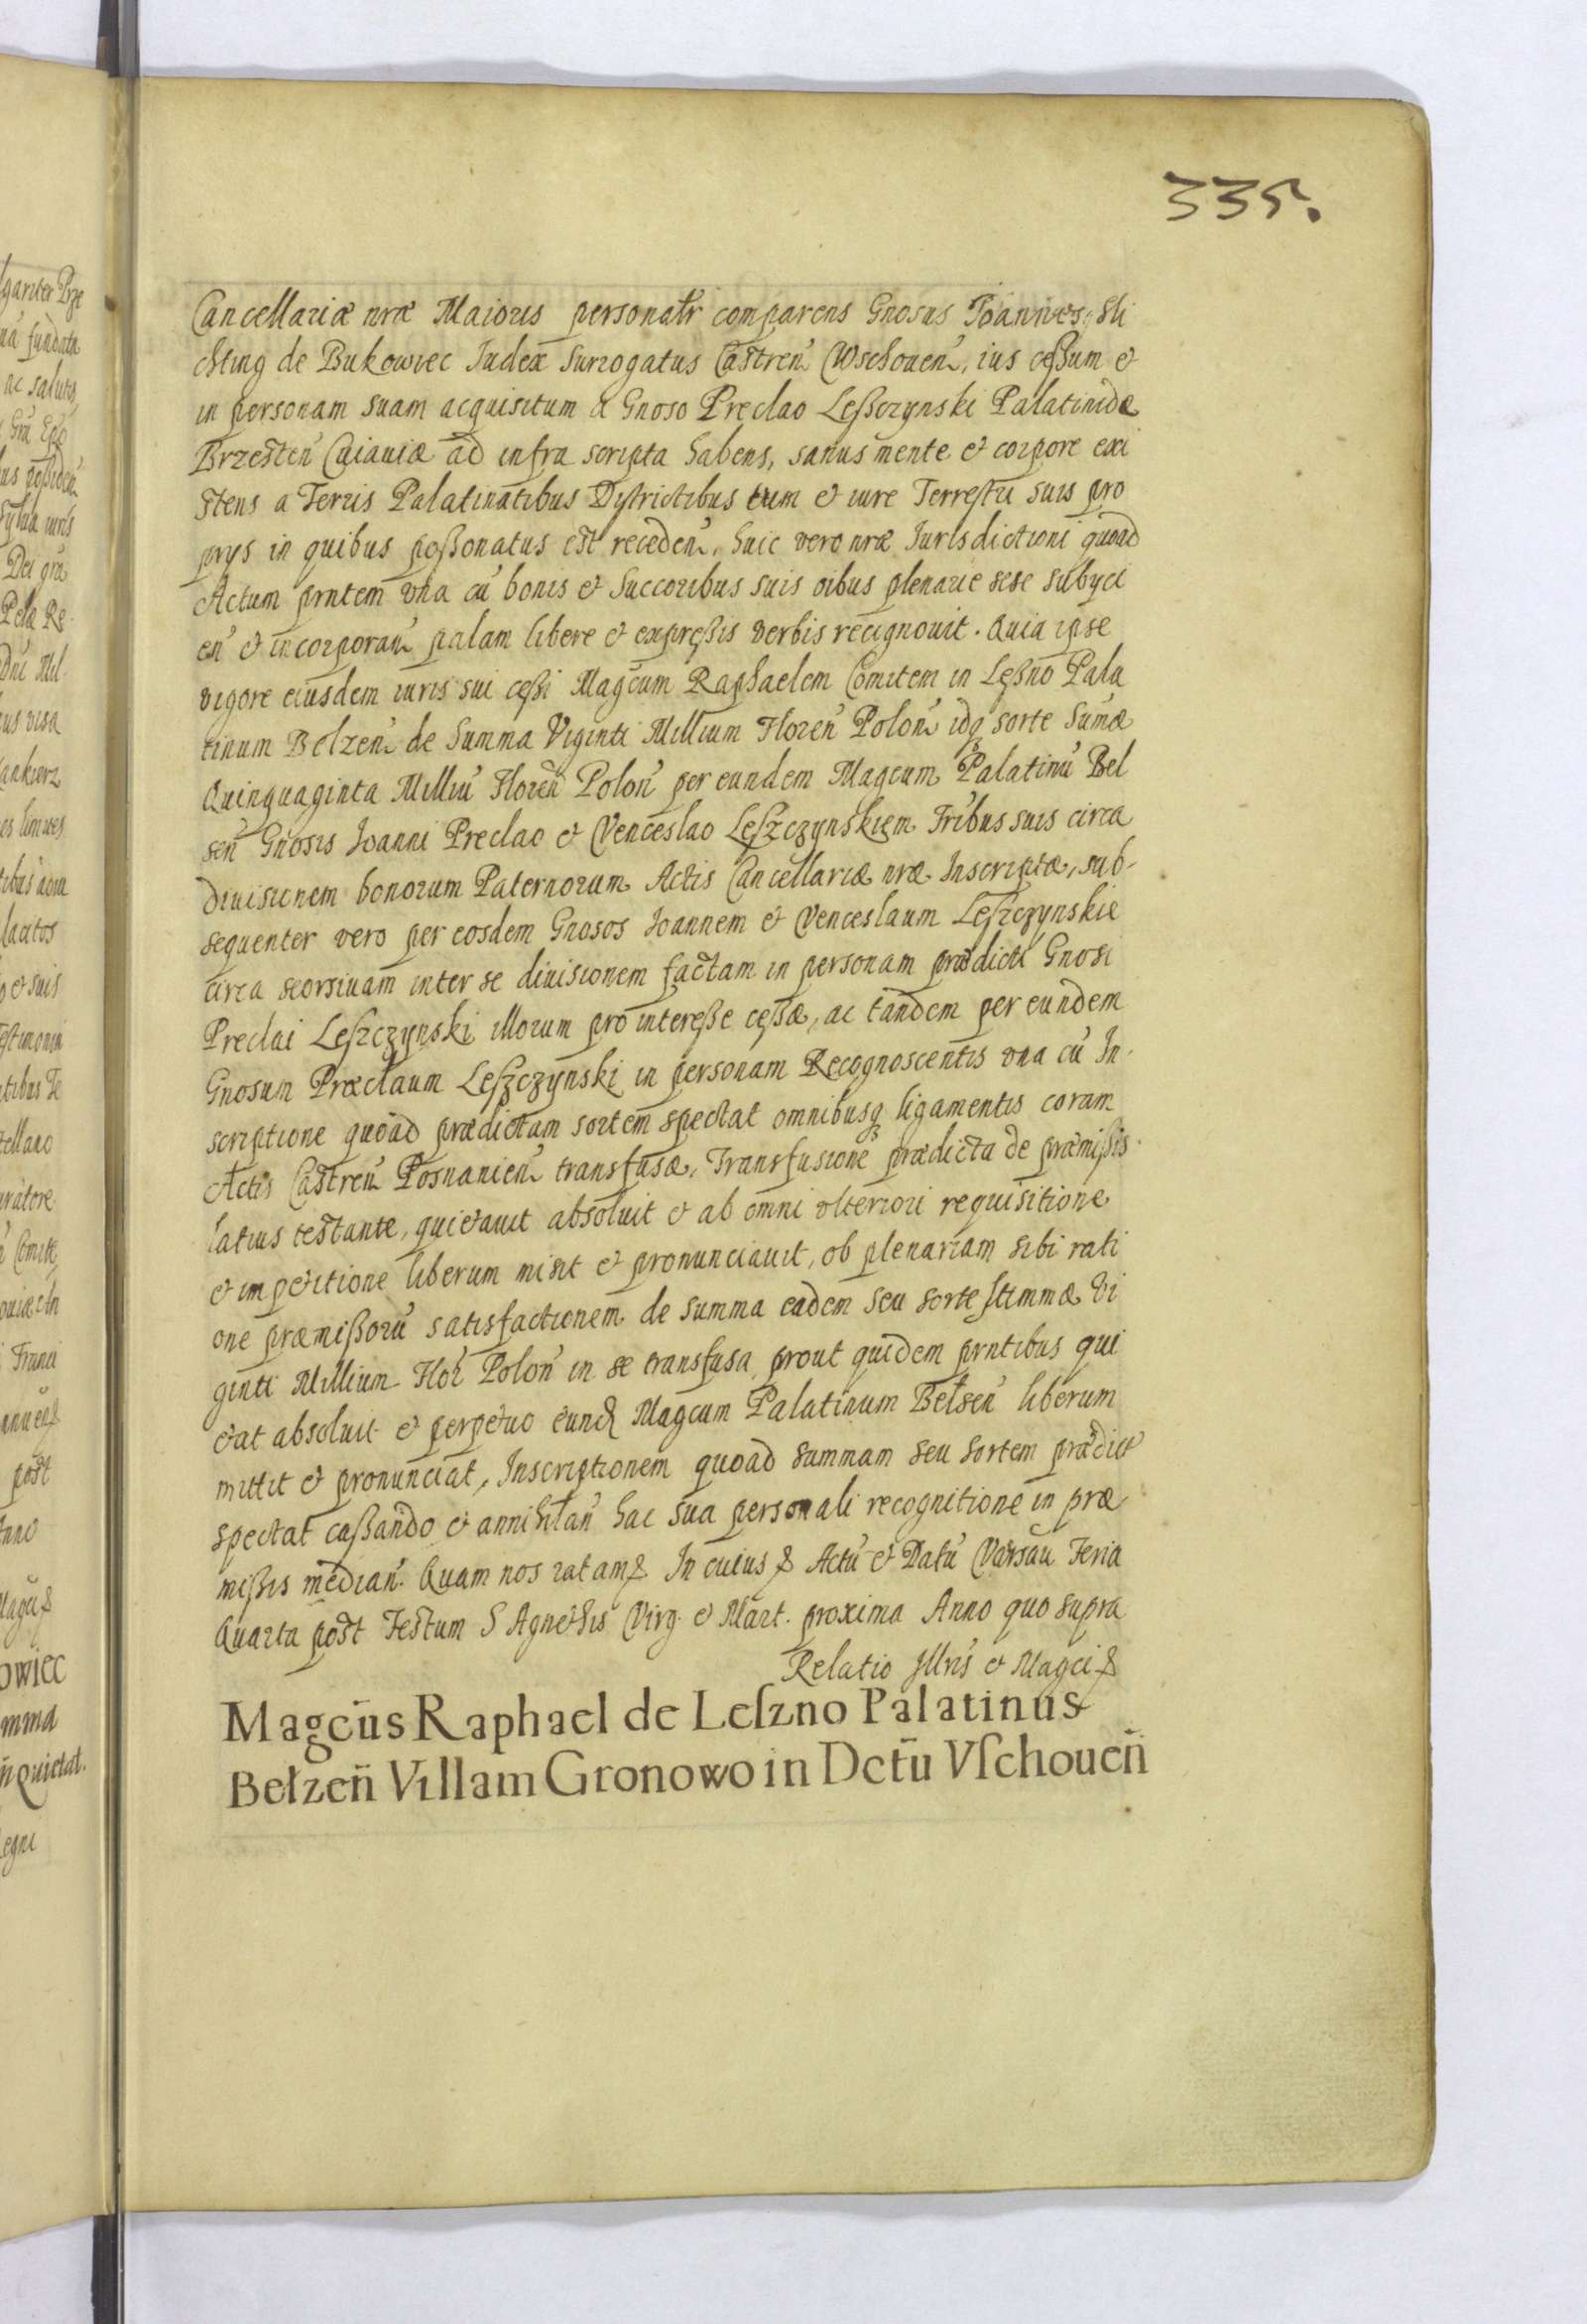 335.
Cancellariæ nræ Maioris personalr̄ comparens Gnosus Joannes Sli
chting de Bukowiec Iudex Surrogatus Castren̄ Wschouen̄, ius cessum et
in personam suam acquisitum a Gnoso Preclao Leßczynski Palatinidæ
Brzesten̄ Cuiauiæ ad infra scripta habens, sanus mente et corpore exi
stens a Terris Palatinatibus Districtibus cum et iure Terrestri suis pro
prys in quibus poßonatus est receden̄, huic vero nræ Iurisdictioni quoad
Actum prntem vna cū bonis et Succoribus suis oibus plenarie sese subyci
en̄ et incorporan̄ palam libere et expreßis verbis recognouit. Quia ipse
vigore eiusdem iuris sui ceßi Magcum Raphaelem Comitem in Leßno Pala
tinum Belzen̄ de Summa Viginti Millium Floren̄ Polon̄ idq́ sorte Sumæ
Quinquaginta Milliū Floren̄ Polon̄ per eundem Magcum Palatinū Bel
sen̄ Gnosis Ioanni Preclao et Venceslao Leſzczynskiem Fribus suis circa
diuisionem bonorum Paternorum Actis Cancellariæ nræ Inscriptæ, sub-
sequenter vero per eosdem Gnosos Ioannem et Venceslaum Leſzczynskie
circa seorsiuam inter se diuisionem factam in personam prædicti Gnosi
Preclai Leſzczynski illorum pro intereße ceßæ, ac tandem per eundem
Gnosum Præclaum Leſzczynski in personam Recognoscentis vna cū In-
scriptione quoad prædictam sortem spectat omnibusq́ ligamentis coram
Actis Castren̄ Posnanien̄ transfusæ, Transfusione prædicta de præmißis
latius testante, quietauit absoluit et ab omni vlteriori requisitione
et impetitione liberum misit et pronunciauit, ob plenariam sibi rati
one præmißorū satisfactionem de summa eadem seu sorte summæ Vi
ginti Millium Flor̄ Polon̄ in se transfusa prout quidem prntibus qui
etat absoluit et perpetuo eund Magcum Palatinum Bełsen̄ liberum
mittit et pronunciat, Inscriptionem quoad summam seu sortem prædict
spectat caßando et annihilan̄ hac sua personali recognitione in præ
mißis median̄. Quam nos ratam ⁊ In cuius ⁊ Actū et Datū Varsau̅ Feria
Quarta post Festum S Agnethis Virg. et Mart. proxima Anno quo supra
Relatio Jllris et Magci ⁊
Magcūs Raphael de Leſzno Palatinus
Bełzen̄ Villam Gronowo in Dctū Vſchouen̄